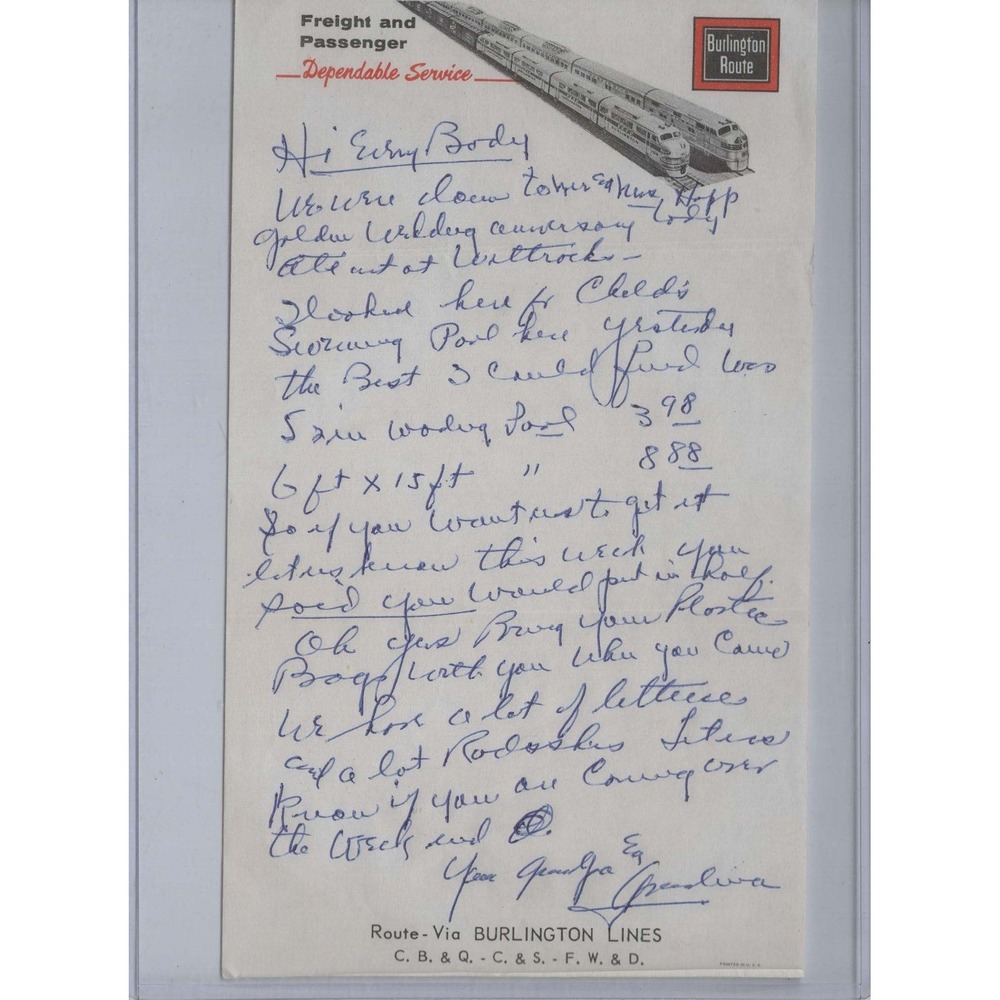 Freight and
Passenger
Dependable Service
Burlington
Route
Hi Every Body
We were down to Mr & Mrs Hopp
golden Wedding anniversary today
ate out at Wittrocks -
I looked here for Child's
Swimming Pool here yesterday
the Best I Could find was
5 wading Pool 3 98
6 ft x 15 ft " 8 88
So if you want us to get it
let us know this week you
said you would put in half.
Oh yes Bring your Plastic
Bags with you when you Come
We have a lot of lettuce
and a lot Radishes Let us
Know if you are Coming over
the Week end
Your Grandpa &
Grandma
Route - Via BURLINGTON LINES
C. B. & Q. - C. & S. - F. W. & D.
PRINTED IN U.S.A.